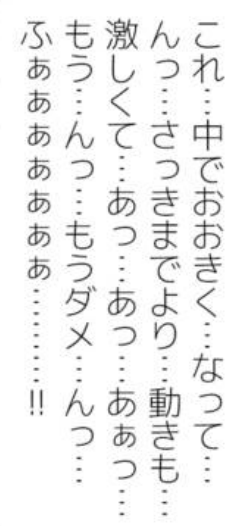 これ…中でおおきく…なって…
んっ…さっきまでより…動きも…
激しくて…あっ…あっ…あぁっ…
もう…んっ…もうダメ…んっ…
ふぁぁぁぁぁぁぁ………!!